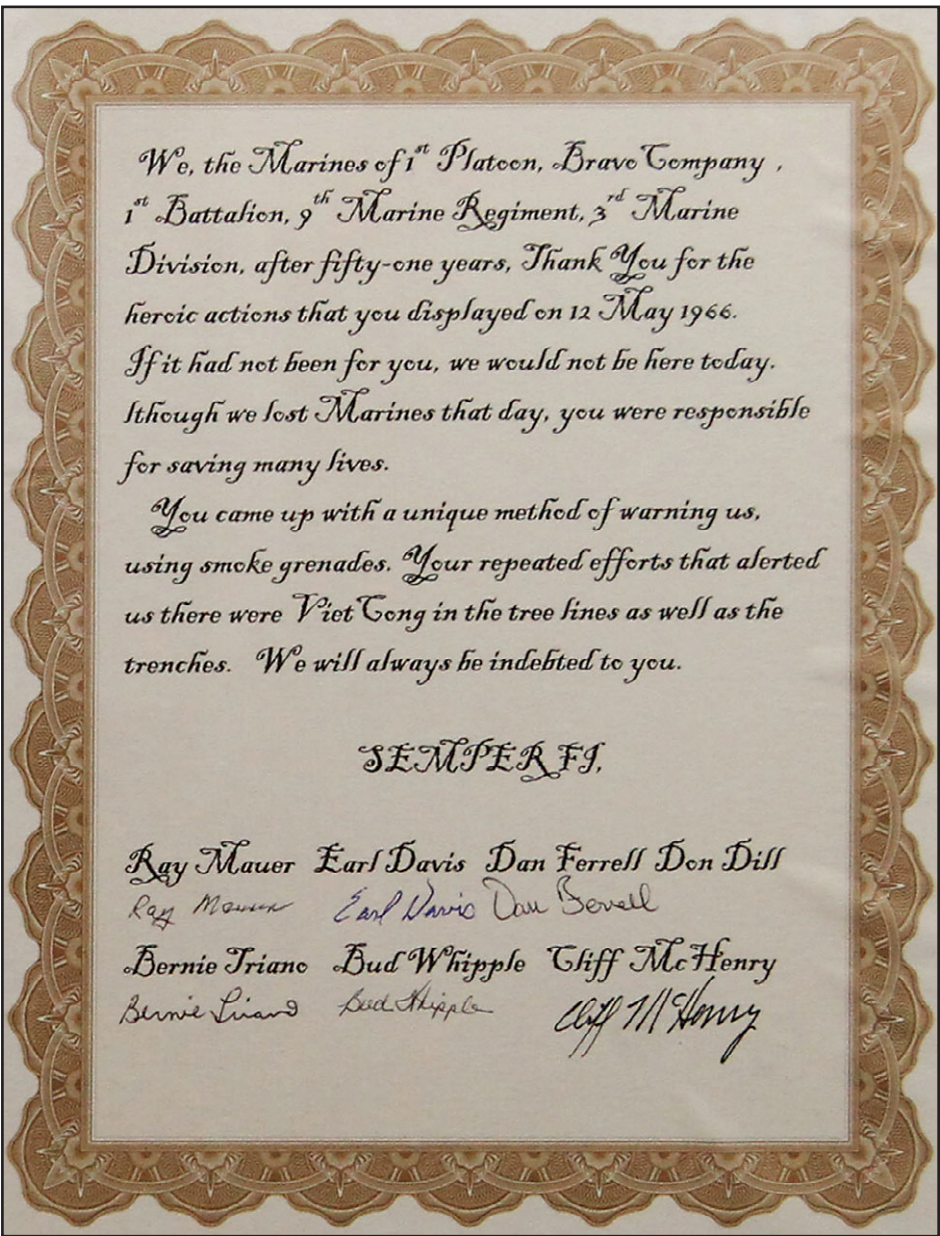 We, the Marines of 1st Platoon, Bravo Company ,
1st Battalion, 9th Marine Regiment, 3rd Marine
Division, after fifty-one years, Thank You for the
heroic actions that you displayed on 12 May 1966.
If it had not been for you, we would not be here today.
lthough we lost Marines that day, you were responsible
for saving many lives.
You came up with a unique method of warning us,
using smoke grenades. Your repeated efforts that alerted
us there were Viet Cong in the tree lines as well as the
trenches. We will always be indebted to you.
SEMPER FI,
Ray Mauer Earl Davis Dan Ferrell Don Dill
Ray Mauer Earl Davis Dan Ferrell
Bernie Triano Bud Whipple Cliff McHenry
Bernie Triano Bud Whipple Cliff McHenry